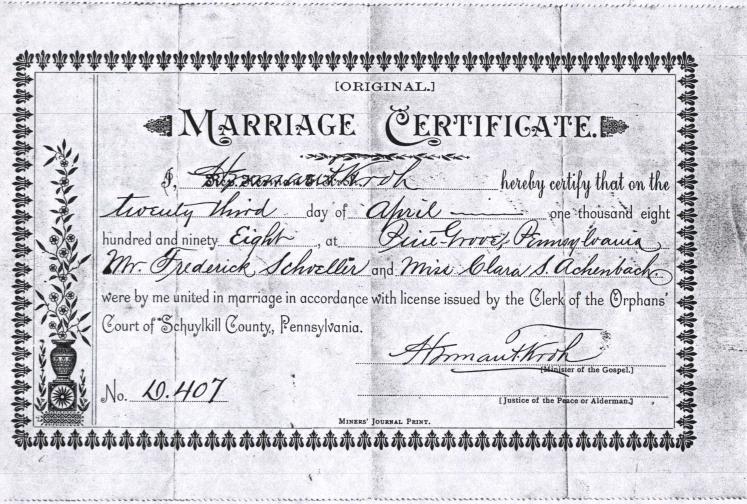 [ORIGINAL.]
MARRIAGE CERTIFICATE.
I, Herman F. Kroh hereby certify that on the
twenty third day of April one thousand eight
hundred and ninety Eight, at Pine Grove, Pennsylvania
Mr. Frederick Schoeller and Miss Clara S. Achenbach.
were by me united in marriage in accordance with license issued by the Clerk of the Orphans'
Court of Schuylkill County, Pennsylvania.
Herman F. Kroh
[Minister of the Gospel.]
No. 10.407
[Justice of the Peace or Alderman.]
MINERS' JOURNAL PRINT.